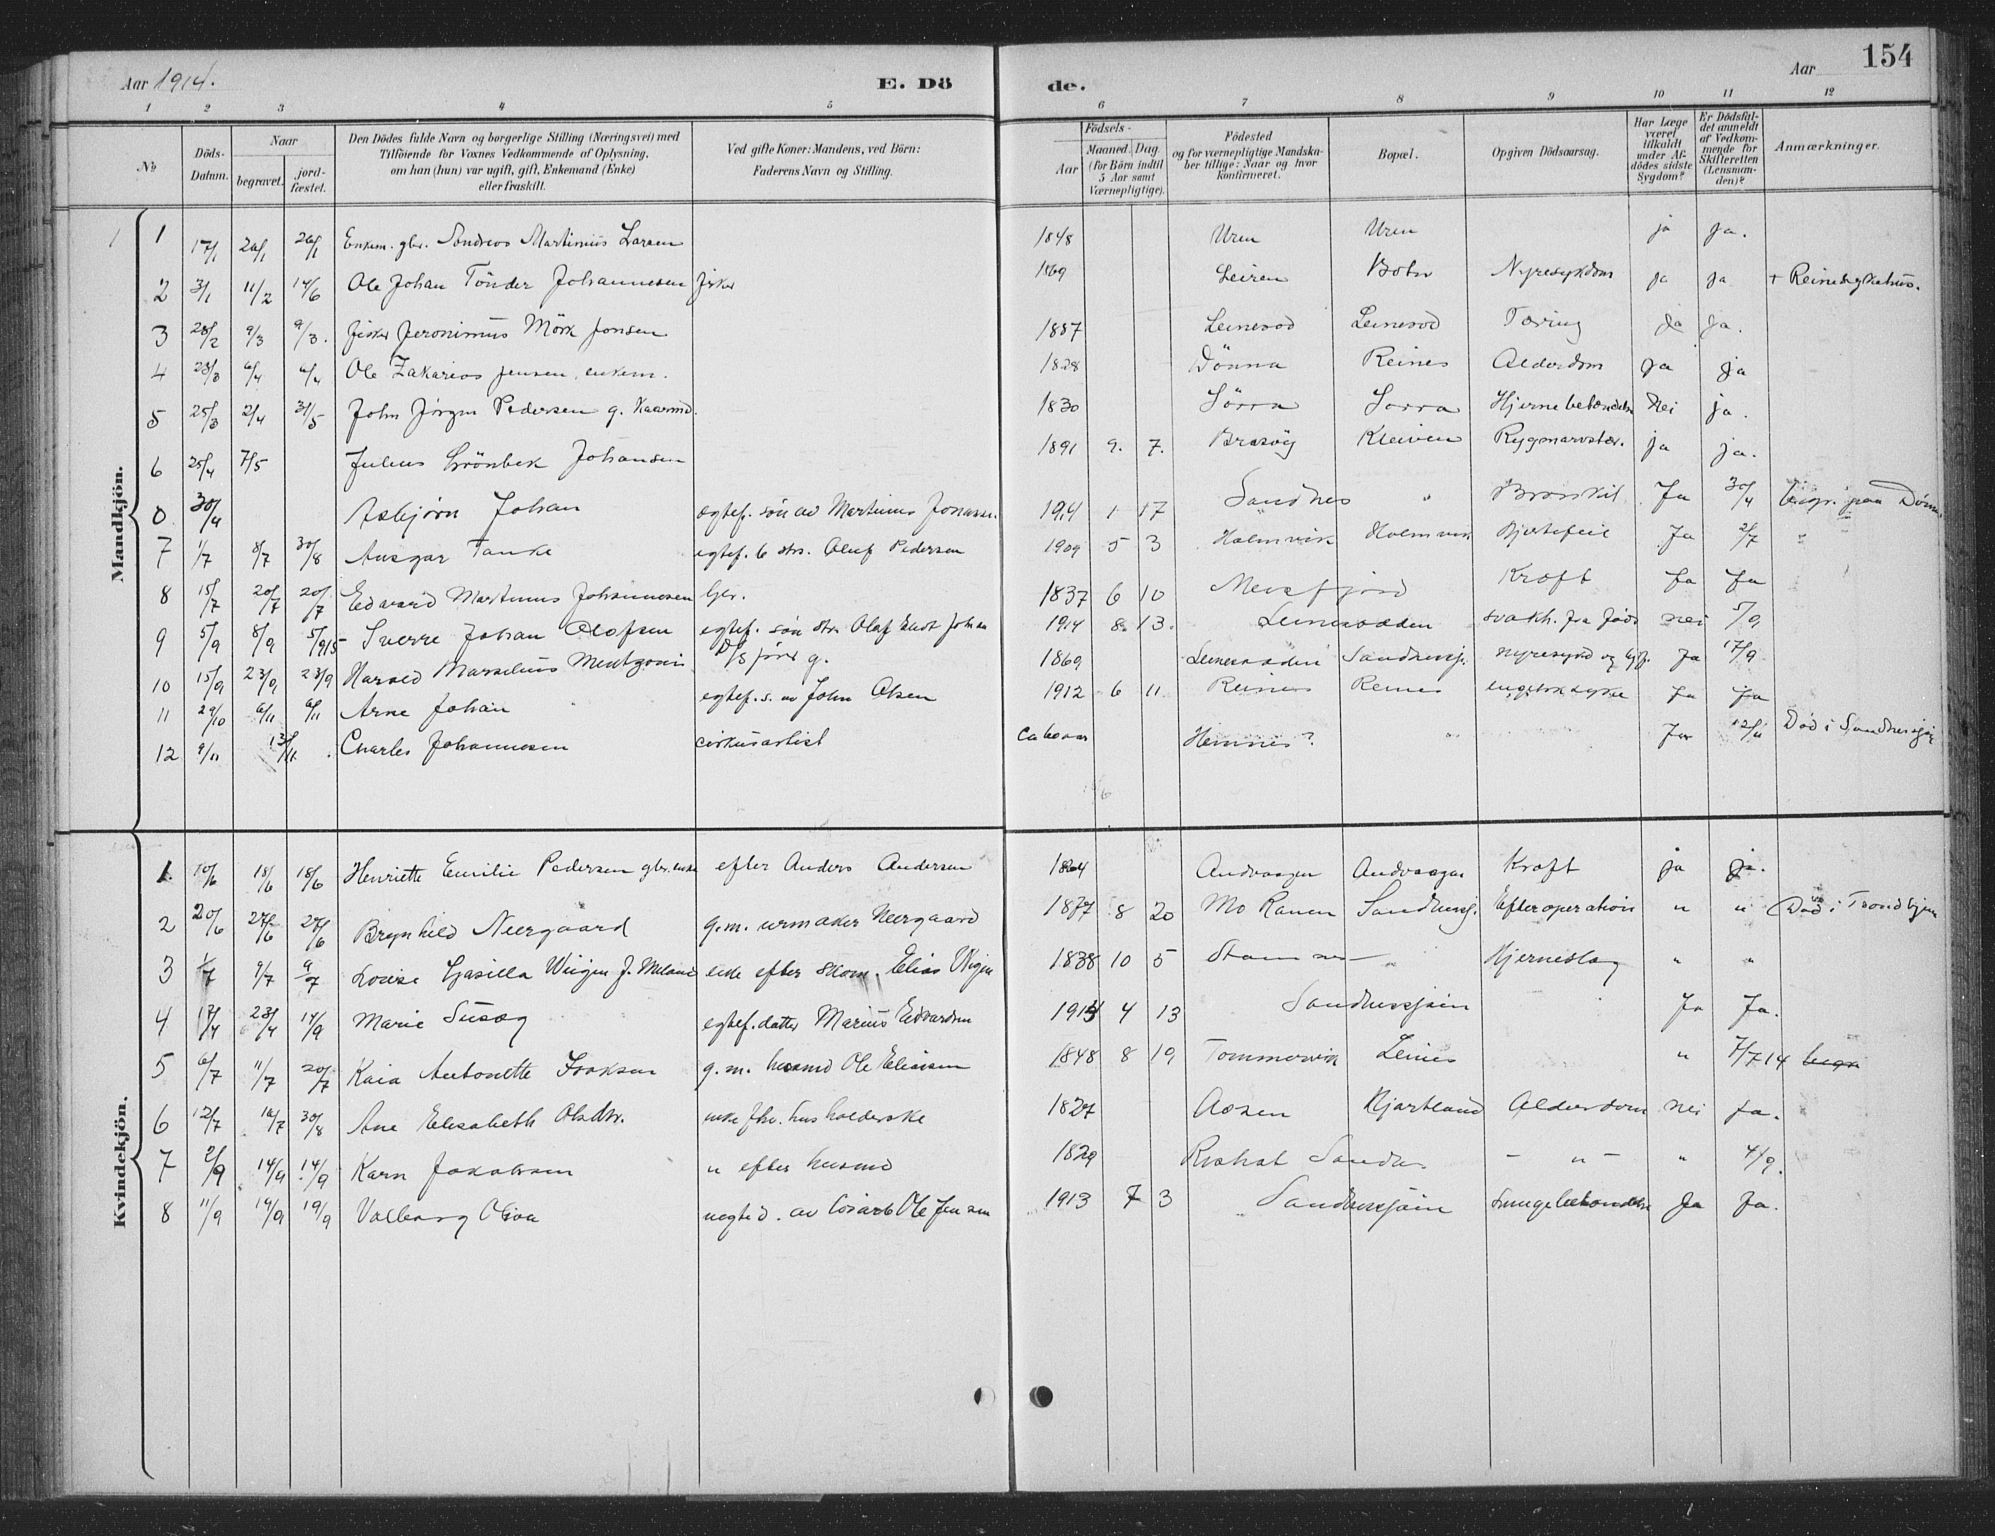 Aar 1914.
E. Dö
de.
Aar
154
1 2 3 4 5 6 7 8 9 10 11 12
No
Döds-Datum.
Naar
begravet.
jord-fæstet.
Den Dödes fulde Navn og borgerlige Stilling (Næringsvei) med
Tilföiende for Voxnes Vedkommende af Oplysning,
om han (hun) var ugift, gift, Enkemand (Enke)
eller fraskilt.
Ved gifte Koner: Mandens, ved Börn:
Faderens Navn og Stilling.
Födsels-
Aar
Maaned. Dag.
(for Börn indtil
5 Aar samt
Værnepligtige).
Födested
og for værnepligtige Mandska-
ber tillige: Naar og hvor
konfirmeret.
Bopæl.
Opgiven Dödsaarsag.
Har Læge
været
tilkaldt
under Af-
dödes sidste
Sygdom?
Er Dödsfal-
det anmeldt
af Vedkom-
mende for
Skifteretten
(Lensman-
den)?
Anmærkninger.
Mandkjön.
1 17/1 26/1 26/1 Enkem. gbr. Andreas Martinius Larsen 1848 Uren Uren ja ja.
2 3/1 11/2 14/6 Ole Johan Tönder Johannesen fisker 1869 Leiren Botn Nyresykdom ja ja + Reines sykehus.
3 28/2 9/3 9/3. fisker Jeronimus Mörk Jonsen 1887 Leinesod Leinesod Tæring ja ja.
4 28/3 6/4 6/4 Ole Zakarias Jensen, enkem. 1828 Dönna Reines Alderdom ja ja
5 25/3 2/4 31/5 John Jörgen Pedersen g. 1830 Sörra Sorra Hjernebetændelse Nei ja.
6 25/4 7/5 Julius Grönbek Johansen 1891 9. 7. Brasöy Kleiven Rygmarvstær. ja ja.
0 30/4 Asbjörn Johan egtef. sön av Martinus 1914 1 17 Sandnes " Bronkit Ja 30/4 begr. paa Dönn.
7 1/7 8/7 30/8 Ansgar Tanke egtef. b strs. Oluf Pedersen 1909 5 3 Holmvik Holmvik Hjertefeil Ja 2/7 "
8 15/7 20/7 20/7 Edvard Martinus Johannesen Gbr. 1837 6 10 Meisfjord Kræft Ja Ja
9 5/9 8/9 5/9 15 Sverre Johan Olofsen egtef. sön str. Olaf Johan 1914 8. 13. Leinesodden svakh. fra föds nei 5/9
10 15/9 23/9 23/9 Harald Marselius g. 1869 Leinesodden Sandnessj. nyresykd og Ja 17/9
11 29/10 6/11 6/11 Arne Johan egtef. s. av John Olsen 1912 6 11 Reines Reines engelsk syke Ja ja
12 9/11 13/11. Charles Johannesen cirkusartist Hemnes? " Ja 12/11 Död i Sandnessjöen
Kvindekjön.
1 10/6 18/6 18/6 Henriette Emilie Pedersen gbr. enke efter Anders Andersen 1864 Andvaagen Andvaagen Kræft ja ja.
2 20/6 27/6 27/6 Brynhild Neergaard g.m. urmaker Neergaard 1877 8 20 Mo Ranen Sandnessj. Efter operation " " Död i Trondhjem
3 1/7 9/7 9/7 Lovise Wiigen f. enke efter skom. Elias Wigen 1838 10 5 Stamnes — " Hjerneslag " "
4 17/4 23/4 14/9 Marie Susög egtef. datter Marius Edvardsen 1914 4 13 Sandnessjöen Ja Ja.
5 6/7 11/7 20/7 Kaia Antonette Isaksen g.m. husmd Ole Eliasen 1848 8 19 Tommervik Leines " 7/7 14 begr.
6 12/7 16/7 30/8 Ane Elisabeth Olsdtr. enke fhv. husholderske 1827 Aasen Hjartland Alderdom nei ja.
7 2/9 14/9 14/9 Karn Jakobsen " efter husmd 1829 Sandn. — " — " 4/9.
8 11/9 19/9 19/9 Valborg Oliva uegted. av Ole Jensen 1913 7 3 Sandnessjöen Lungebetændelse Ja Ja.